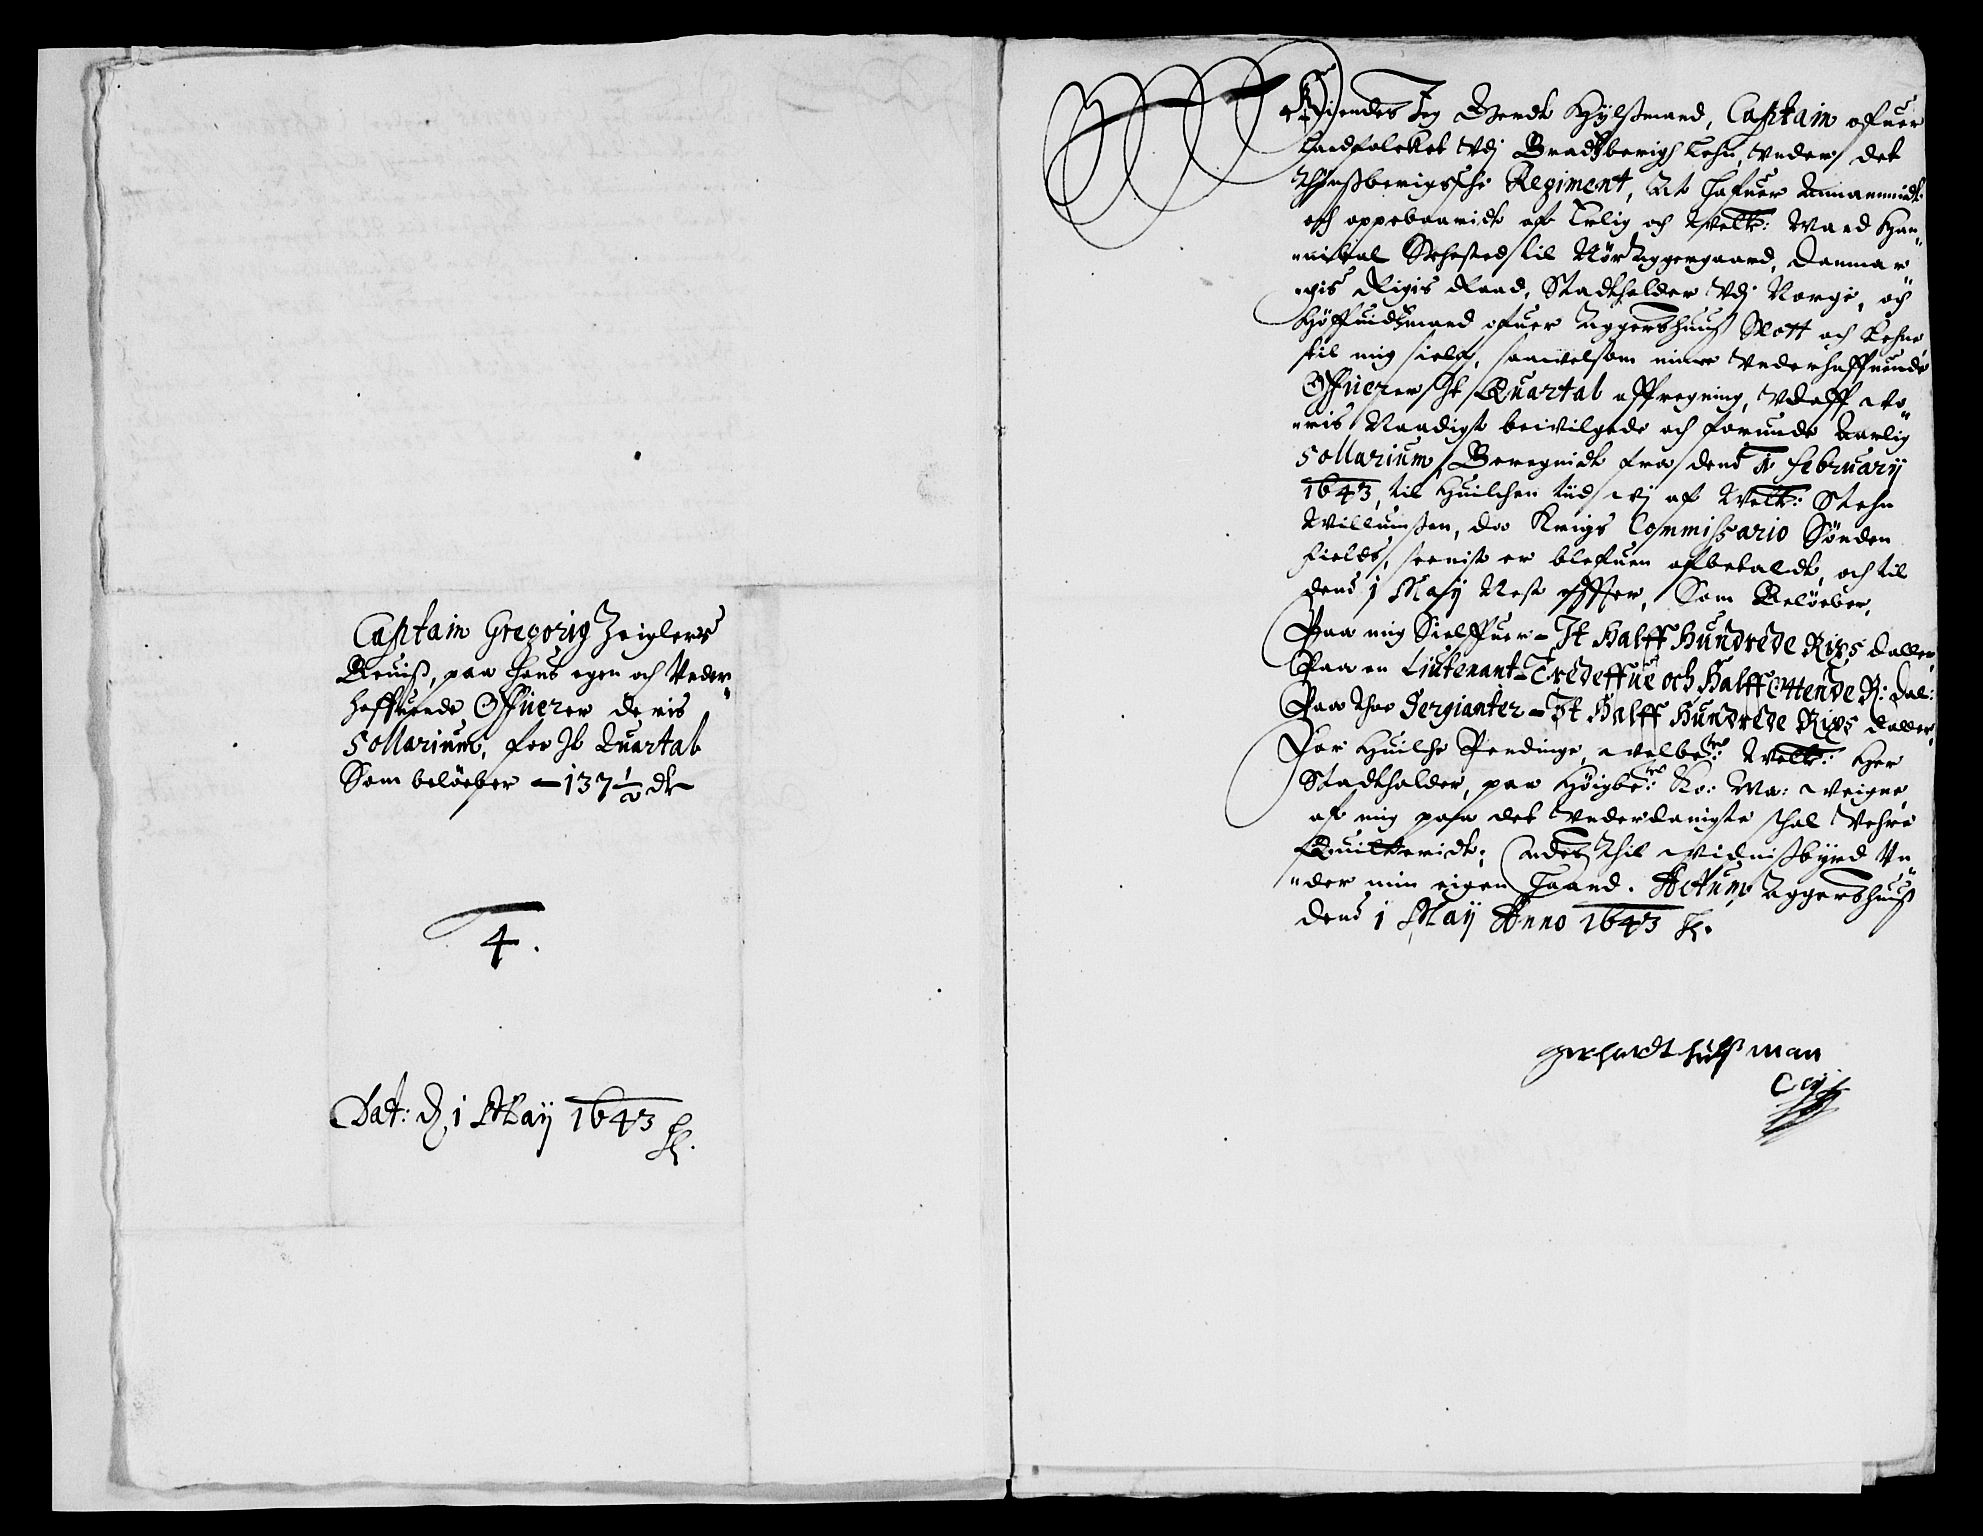 Captain Gregorig Zeiglers
Beuiß, paa hans egen och Vnder¨
haffuende Officerer deris
Sollarium, for It Quartal
Som belöeber — 137 1/2 dr
4.
Dat: d. 1 May 1643

Kiendes Jeg Gerdt Hylßmand, Captain ofuer
Landfolcket Vdj Bradtzberigs Lehn, Vnder det
Thonßberigssche Regiment, At hafuer Annammidt
och oppebaaridt af Erlig och Welb: Mand Han¨
¨nibal Sehested til Nör Aggergaard, Danmar¨
¨chis Rigis Raad, Stadtholder Vdj Norge, och
Höffuidtzmand ofuer Aggershuus Slott och Lehne,
til mig sielf, saauelsom mine Vnderhaffuende
Officerer It Quartal affregning, Vdaff Vo¨
¨ris Naadigst beuilgede och forunde Aarlig
Sollarium, Beregnidt fra dend 1 February
1643, til huilchen tiid vj af Welb: Stehn
Willumßen, da Krigs Commissario Sönden
fields, seenist er blefuen afbetaldt, och til
dend 1 May Nest effter, Som Belöeber,
Paa mig Sielffuer – It Halff Hundrede Rixs daller,
Paa en Liutenant – Tredeffue och Halff Ottende R: dal:
Paa thoe Sergianter – It Halff Hundrede Rixs daller,
For huilche Pendinge, velbe:te Welb: Her
Stadtholder, paa Höigbe:te Ko: Ma: veigne,
af mig paa det Vnderdanigste schal Vehre
Quitteridt, Ades thil Vidnißbyrd Vn¨
¨der min eigen Haand. Actum Aggershuus
dend 1 May Anno 1643
gerhardt hülsman
Cap